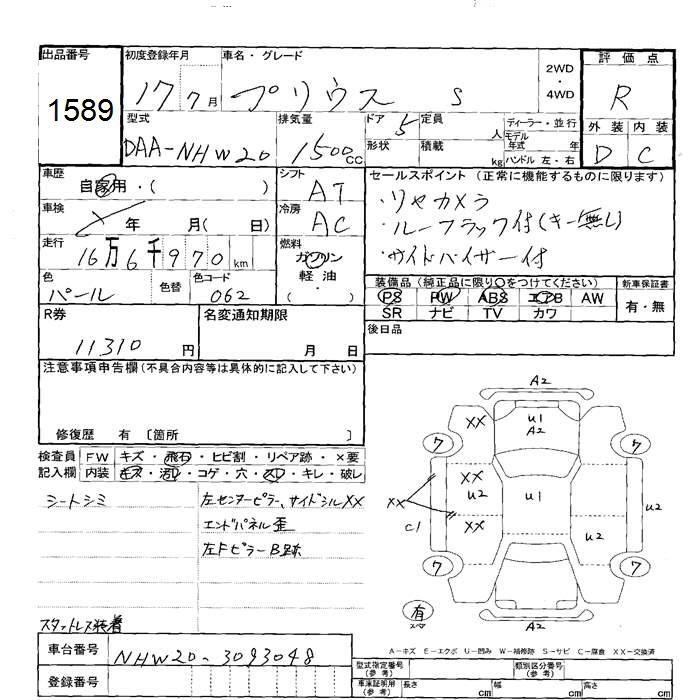 出品番号
1589
初度登録年月
17 7月
車名・グレード
プリウス S
2WD
・
4WD
評価点
R
外装 内装
D C
型式
DAA-NHW20
排気量
1500cc
ドア 5
形状
定員 人
積載 kg
ディーラー・並行
モデル年式 年
ハンドル 左・右
車歴
自家用・( )
車検
年 月( 日)
走行
16万6千970km
色
パール
色替
色コード
062
シフト
AT
冷房
AC
燃料
ガソリン
軽油
( )
セールスポイント (正常に機能するものに限ります)
・リヤカメラ
・ルーフラック付(キー無し)
・サイドバイザー付
装備品(純正品に限り○をつけてください)
PS PW ABS エアB AW
SR ナビ TV カワ
新車保証書
有・無
後日品
R券
11310円
名変通知期限
月 日
注意事項申告欄(不具合内容等は具体的に記入して下さい)
修復歴 有 〔箇所 〕
検査員 FW キズ・飛石・ヒビ割・リペア跡・×要
記入欄 内装 キズ・汚レ・コゲ・穴・スレ・キレ・破レ
シートシミ
左センターピラー、サイドシルXX
エンドパネル歪
左FピラーB跡
スタットレス装着
A2
XX
U1
A2
7
7
XX
U2
XX
U1
XX
C1
U2
U2
7
7
有
スペ
A2
A-キズ E-エクボ U-凹み W-補修跡 S-サビ C-腐食 XX-交換済
車台番号
NHW20-3093048
登録番号
型式指定番号
(参考)
類別区分番号
(参考)
車庫証明用
(参考)
長さ cm
幅 cm
高さ cm